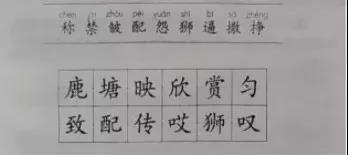 chèn jīn zhòu pèi yuàn shī bī sā zhēng
称 禁 皱 配 怨 狮 逼 撒 挣
鹿 塘 映 欣 赏 匀
致 配 传 哎 狮 叹